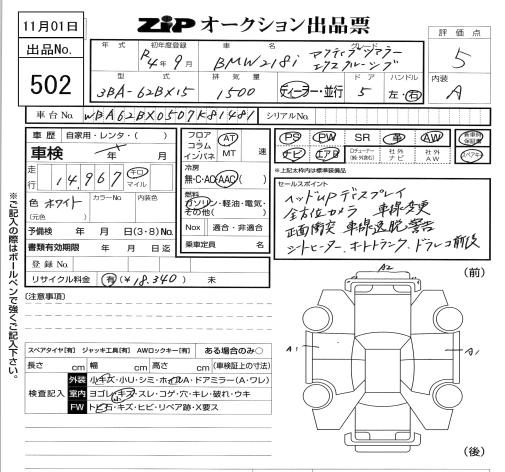 11月01日
出品No.
502
ZIP オークション出品票
評価点
5
内装
A
年式 初年度登録 車名 グレード
R4年9月 BMW218i アクティブツアラー エクスクルーシブ
型式 排気量 ドア ハンドル
3BA-62BX15 1500 ディーラー・並行 5 左・右
車台No. WBA62BX0507K81481 シリアルNo.
車歴 自家用・レンタ・( )
車検 年 月
走行 14,967 キロ マイル
色 ホワイト カラーNo. 内装色
(元色)
予備検 年 月 日(3・8)No.
書類有効期限 年 月 日迄
登録No.
リサイクル料金 有(¥18,340) 未
フロア コラム インパネ AT MT 速
冷房
無・C・AC・AAC( )
燃料
ガソリン・軽油・電気・その他( )
Nox 適合・非適合
乗車定員 名
PS PW SR 革 AW
ナビ エアB Dチューナー(純・外含む) 社外ナビ 社外AW
※上記太枠内は標準装備品
セールスポイント
ヘッドUPディスプレイ
全方位カメラ 車線変更
前面衝突 車線逸脱警告
シートヒーター、オートトランク、ドラレコ前後
[注意事項]
スペアタイヤ[有] ジャッキ工具[有] AWロックキー[有] ある場合のみ○
長さ cm 幅 cm 高さ cm (車検証上の寸法)
検査記入
外装 小キズ・小U・シミ・ホイルA・ドアミラー(A・ワレ)
室内 ヨゴレ・キズ・スレ・コゲ・穴・キレ・破れ・ウキ
FW トビ石・キズ・ヒビ・リペア跡・X要ス
(前)
A2
A1
A1
(後)
※ご記入の際はボールペンで強くご記入下さい。